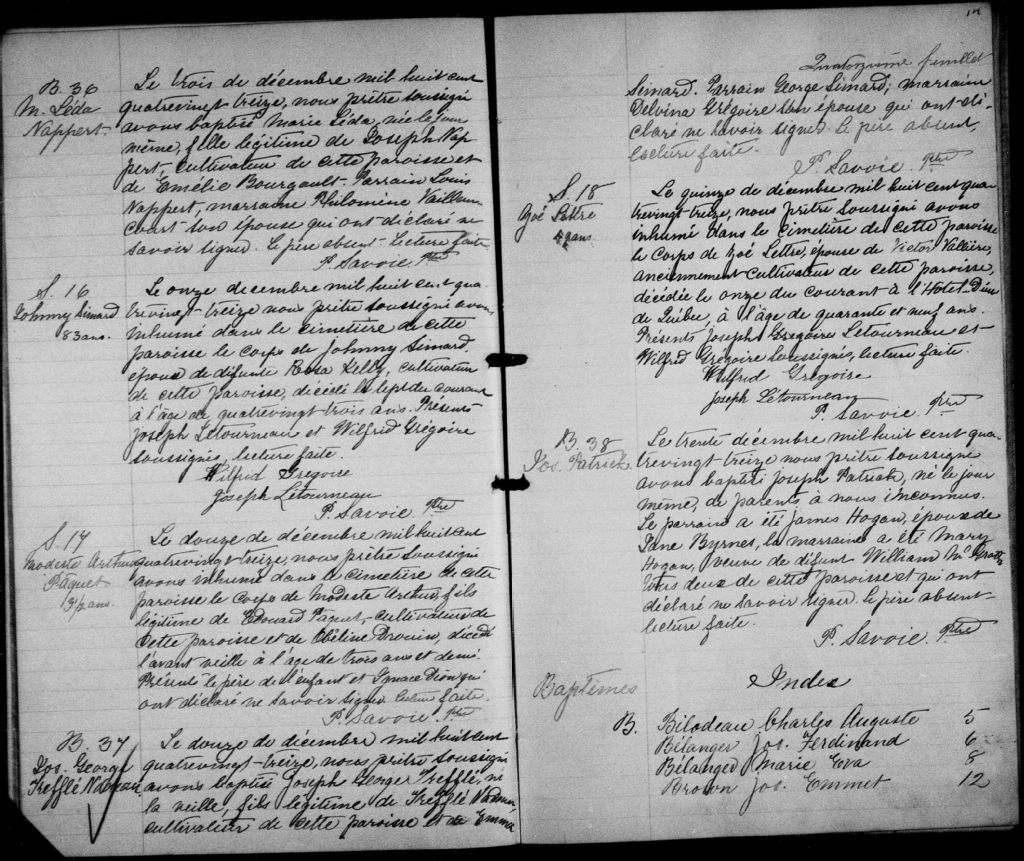 B. 36
M. Léda
Nappert.
Le trois de décembre mil huit cent
quatrevingt treize, nous prêtre soussigné
avons baptisé Marie Léda, née le jour
même, fille légitime de Joseph Nap-
pert, cultivateur de cette paroisse et
de Emélie Bourgault. Parrain Louis
Nappert, marraine Philomène Vaillan-
court son épouse qui ont déclaré ne
savoir signer. Le père absent. Lecture faite
P. Savoie, Ptre
S. 16
Johnny Simard
83 ans.
Le onze decembre mil huit cent qua-
trevingt-treize nous prêtre soussigné avons
inhumé dans le cimetière de cette
paroisse le corps de Johnny Simard,
époux de défunte Rosa Kelly, cultivateur
de cette paroisse, décédé le sept du courant
à l'âge de quatrevingt trois ans. Présents
Joseph Letourneau et Wilfrid Grégoire
soussignés, lecture faite.
Wilfrid Gregoire
Joseph Létourneau
P. Savoie. Ptre
S. 17
Modeste Arthur
Paquet
3 1/2 ans.
Le douze de décembre mil huit cent
quatrevingt-treize, nous prêtre soussigné
avons inhumé dans le cimetière de cette
paroisse le corps de Modeste Arthur, fils
légitime de Edouard Paquet, cultivateur de
cette paroisse et de Drouin, décédé
l'avant veille à l'age de trois ans et demi.
Présents le père de l'enfant et Ignace Dion qui
ont déclaré ne savoir signer. Lecture faite.
P. Savoie. Ptre
B. 37
Jos. George
Trefflé Nadeau
Le douze de décembre mil huit cent
quatrevingt-treize, nous prêtre soussigné
avons baptisé Joseph George Trefflé, né
la veille, fils légitime de Trefflé Nadeau,
cultivateur de cette paroisse et de Emma
Quatorzième feuillet
Semard. Parrain George Simard; marraine
Delvina Grégoire son épouse qui ont dé-
claré ne savoir signer. Le père absent,
lecture faite.
P. Savoie. Ptre
S. 18
Zoé Lettre
ans
Le quinze de décembre mil huit cent qua-
trevingt treize, nous prêtre soussigné avons
inhumé dans le cimetière de cette paroisse
le corps de Zoé Lettre, épouse de Victor Vallière,
anciennement cultivateur de cette paroisse,
décédée le onze du courant à l'Hotel Dieu
de Québec, à l'âge de quarante et neuf ans.
Présents Joseph Gregoire Letourneau et
Wilfrid Grégoire soussignés, lecture faite.
Wilfrid Gregoire
Joseph Létourneau
P. Savoie. Ptre
B. 38
Jos. Patrick
Le trente décembre mil huit cent qua-
trevingt treize nous prêtre soussigné
avons baptisé Joseph Patrick, né le jour
même, de parents à nous inconnus.
Le parrain a été James Hogan, époux de
Jane Byrnes, la marraine a été Mary
Hogan, veuve de défunt William
tous deux de cette paroisse et qui ont
déclaré ne savoir signer. Le père absent
lecture faite.
P. Savoie. Ptre
Baptêmes
Index
B. Bilodeau Charles Auguste 5
Bélanger Jos. Ferdinand 6
Bélanger Marie Eva 8
Brown Jos. Emmet 12